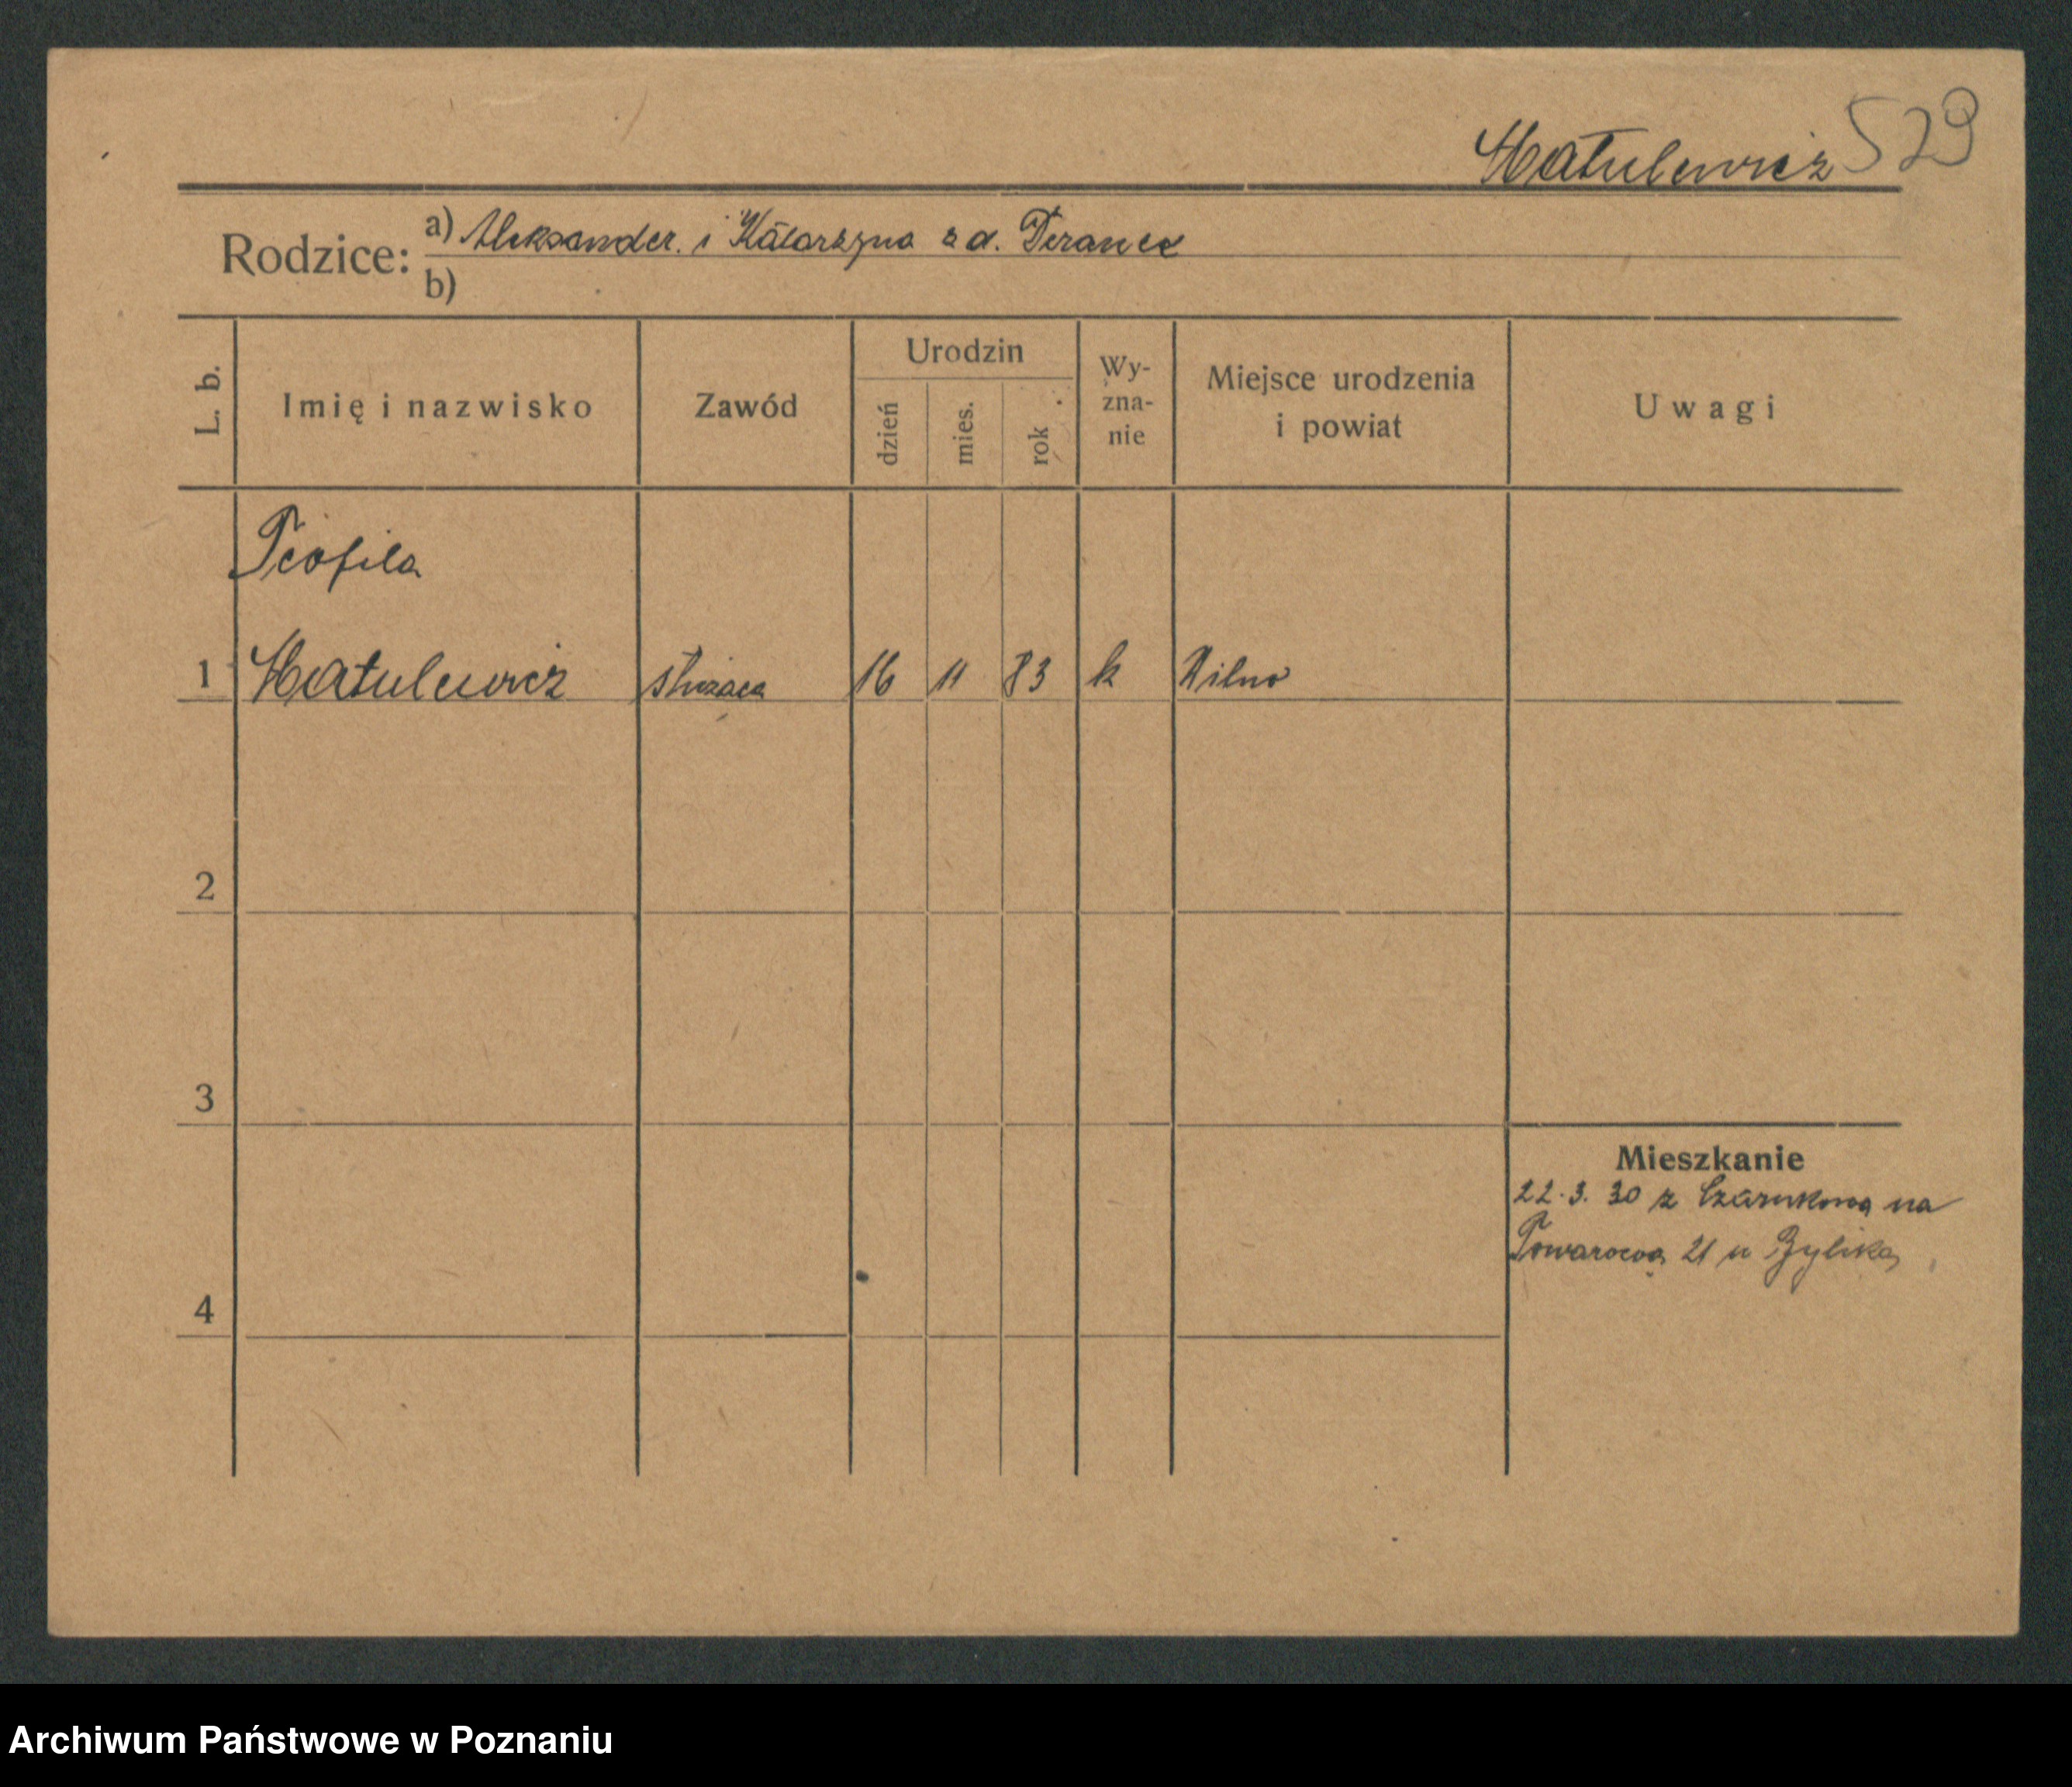 Matulewicz 529
Rodzice: a) Aleksander i Katarzyna z d.
b)
L. b. Imię i nazwisko Zawód Urodzin dzień mies. rok Wy-zna-nie Miejsce urodzenia i powiat Uwagi
Teofila
1 Matulewicz służąca 16 11 83 k Wilno
2
3
Mieszkanie
22.3.30 z Czarnkowa na
Towarową 21 u
4
Archiwum Państwowe w Poznaniu